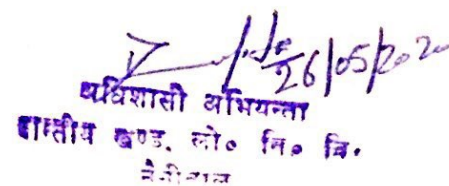 26/05/2020
अधिशासी अभियन्ता
प्रान्तीय खण्ड, लो० नि० वि०
नैनीताल